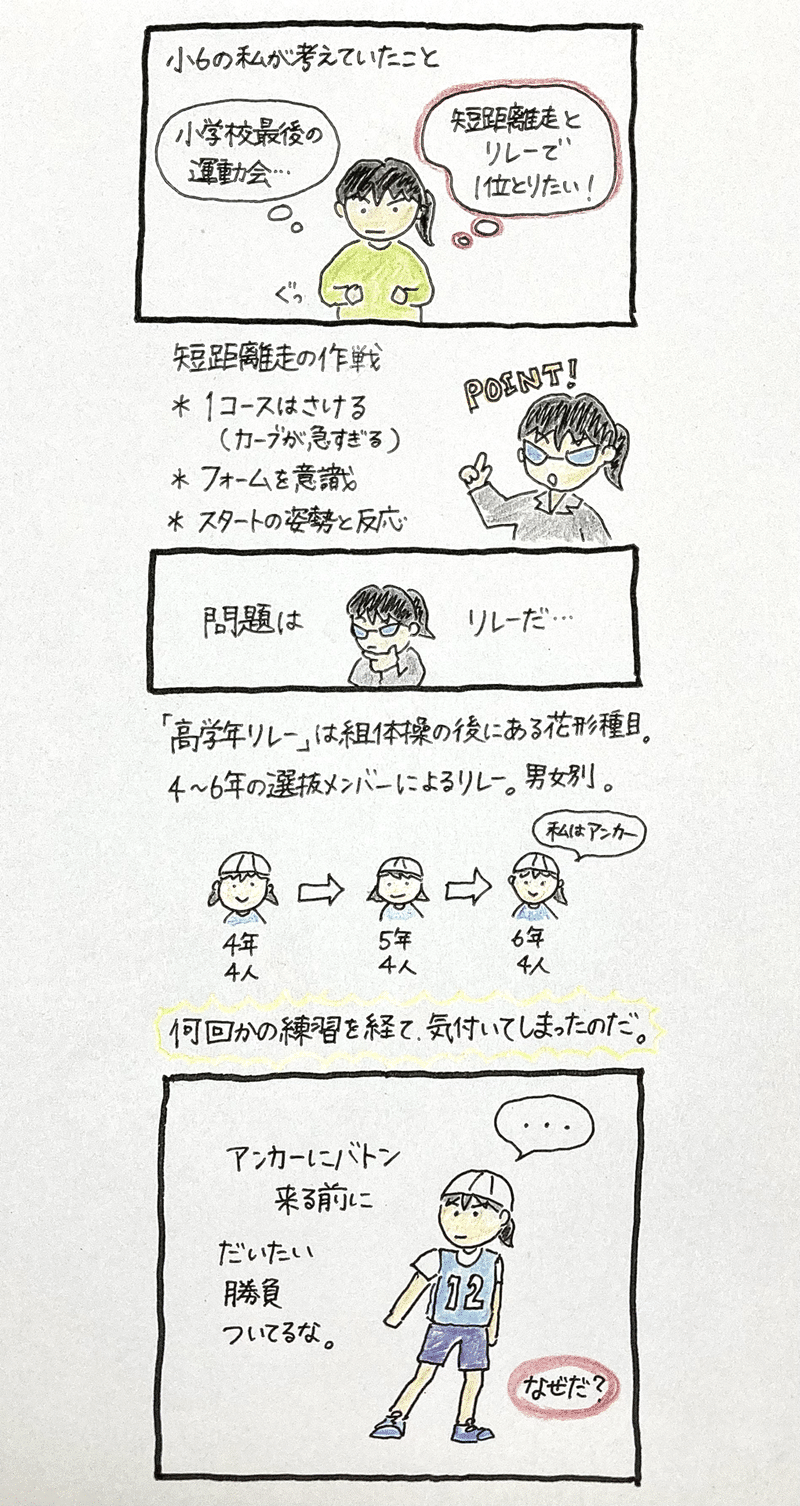 小6の私が考えていたこと
小学校最後の
運動会…
短距離走と
リレーで
1位とりたい!
ぐっ
短距離走の作戦
* 1コースはさける
(カーブが急すぎる)
* フォームを意識
* スタートの姿勢と反応
POINT!
問題は
リレーだ…
「高学年リレー」は組体操の後にある花形種目。
4~6年の選抜メンバーによるリレー。男女別。
私はアンカー
4年
4人
5年
4人
6年
4人
何回かの練習を経て、気付いてしまったのだ。
...
アンカーにバトン
来る前に
だいたい
勝負
ついてるな。
12
なぜだ?